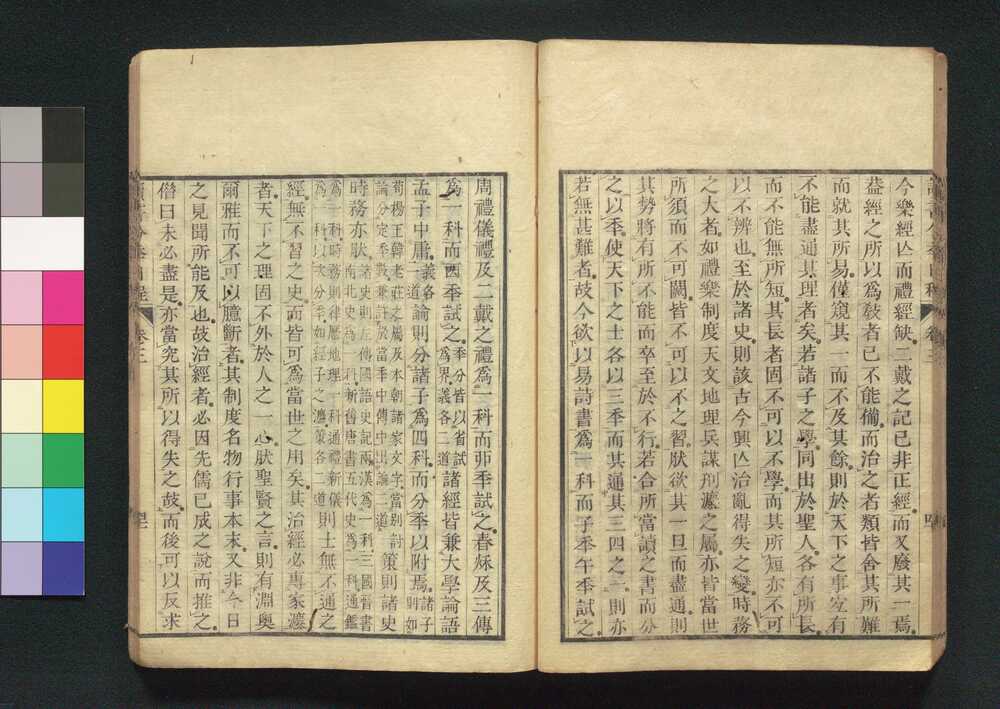 今樂經亾而禮經缺二戴之記已非正經而又廢其一焉
葢經之所以爲敎者已不能備而治之者類皆舍其所難
而就其所易僅窺其一而不及其餘則於天下之事宐有
不能盡通其理者矣若諸子之學同出於聖人各有所長
而不能無所短其長者固不可以不學而其所短亦不可
以不辨也至於諸史則該古今興亾治亂得失之變時務
之大者如禮樂制度天文地理兵謀刑灋之屬亦皆當世
所須而不可闕皆不可以不之習肰欲其一旦而盡通則
其勢將有所不能而卒至於不行若合所當讀之書而分
之以秊使天下之士各以三秊而共通其三四之一則亦
若無甚難者故今欲以易詩書爲一科而子秊午秊試之
讀書分秊日程
卷三
周禮儀禮及二戴之禮爲一科而卯秊試之春秌及三傳
爲一科而酉秊試之秊分皆以省試爲界義各二道諸經皆兼大學論語
孟子中庸義各一道論則分諸子爲四科而分秊以附焉諸子則如
荀楊王韓老莊之屬及本朝諸家文字當别討
論分定秊數兼許於當秊中傳中出論二道策則諸史
時務亦肰諸史則左傳國語史記兩漢爲一科三國晉書
南北史爲一科新舊唐書五代史爲一科通鑑
爲一科時務則律曆地理爲一科通禮新儀
爲一科以次分秊如經子之灋策各二道則士無不通之
經無不習之史而皆可爲當世之用矣其治經必專家灋
者天下之理固不外於人之一心肰聖賢之言則有淵奧
爾雅而不可以臆斷者其制度名物行事本末又非今日
之見聞所能及也故治經者必因先儒已成之說而推之
借曰未必盡是亦當究其所以得失之故而後可以反求